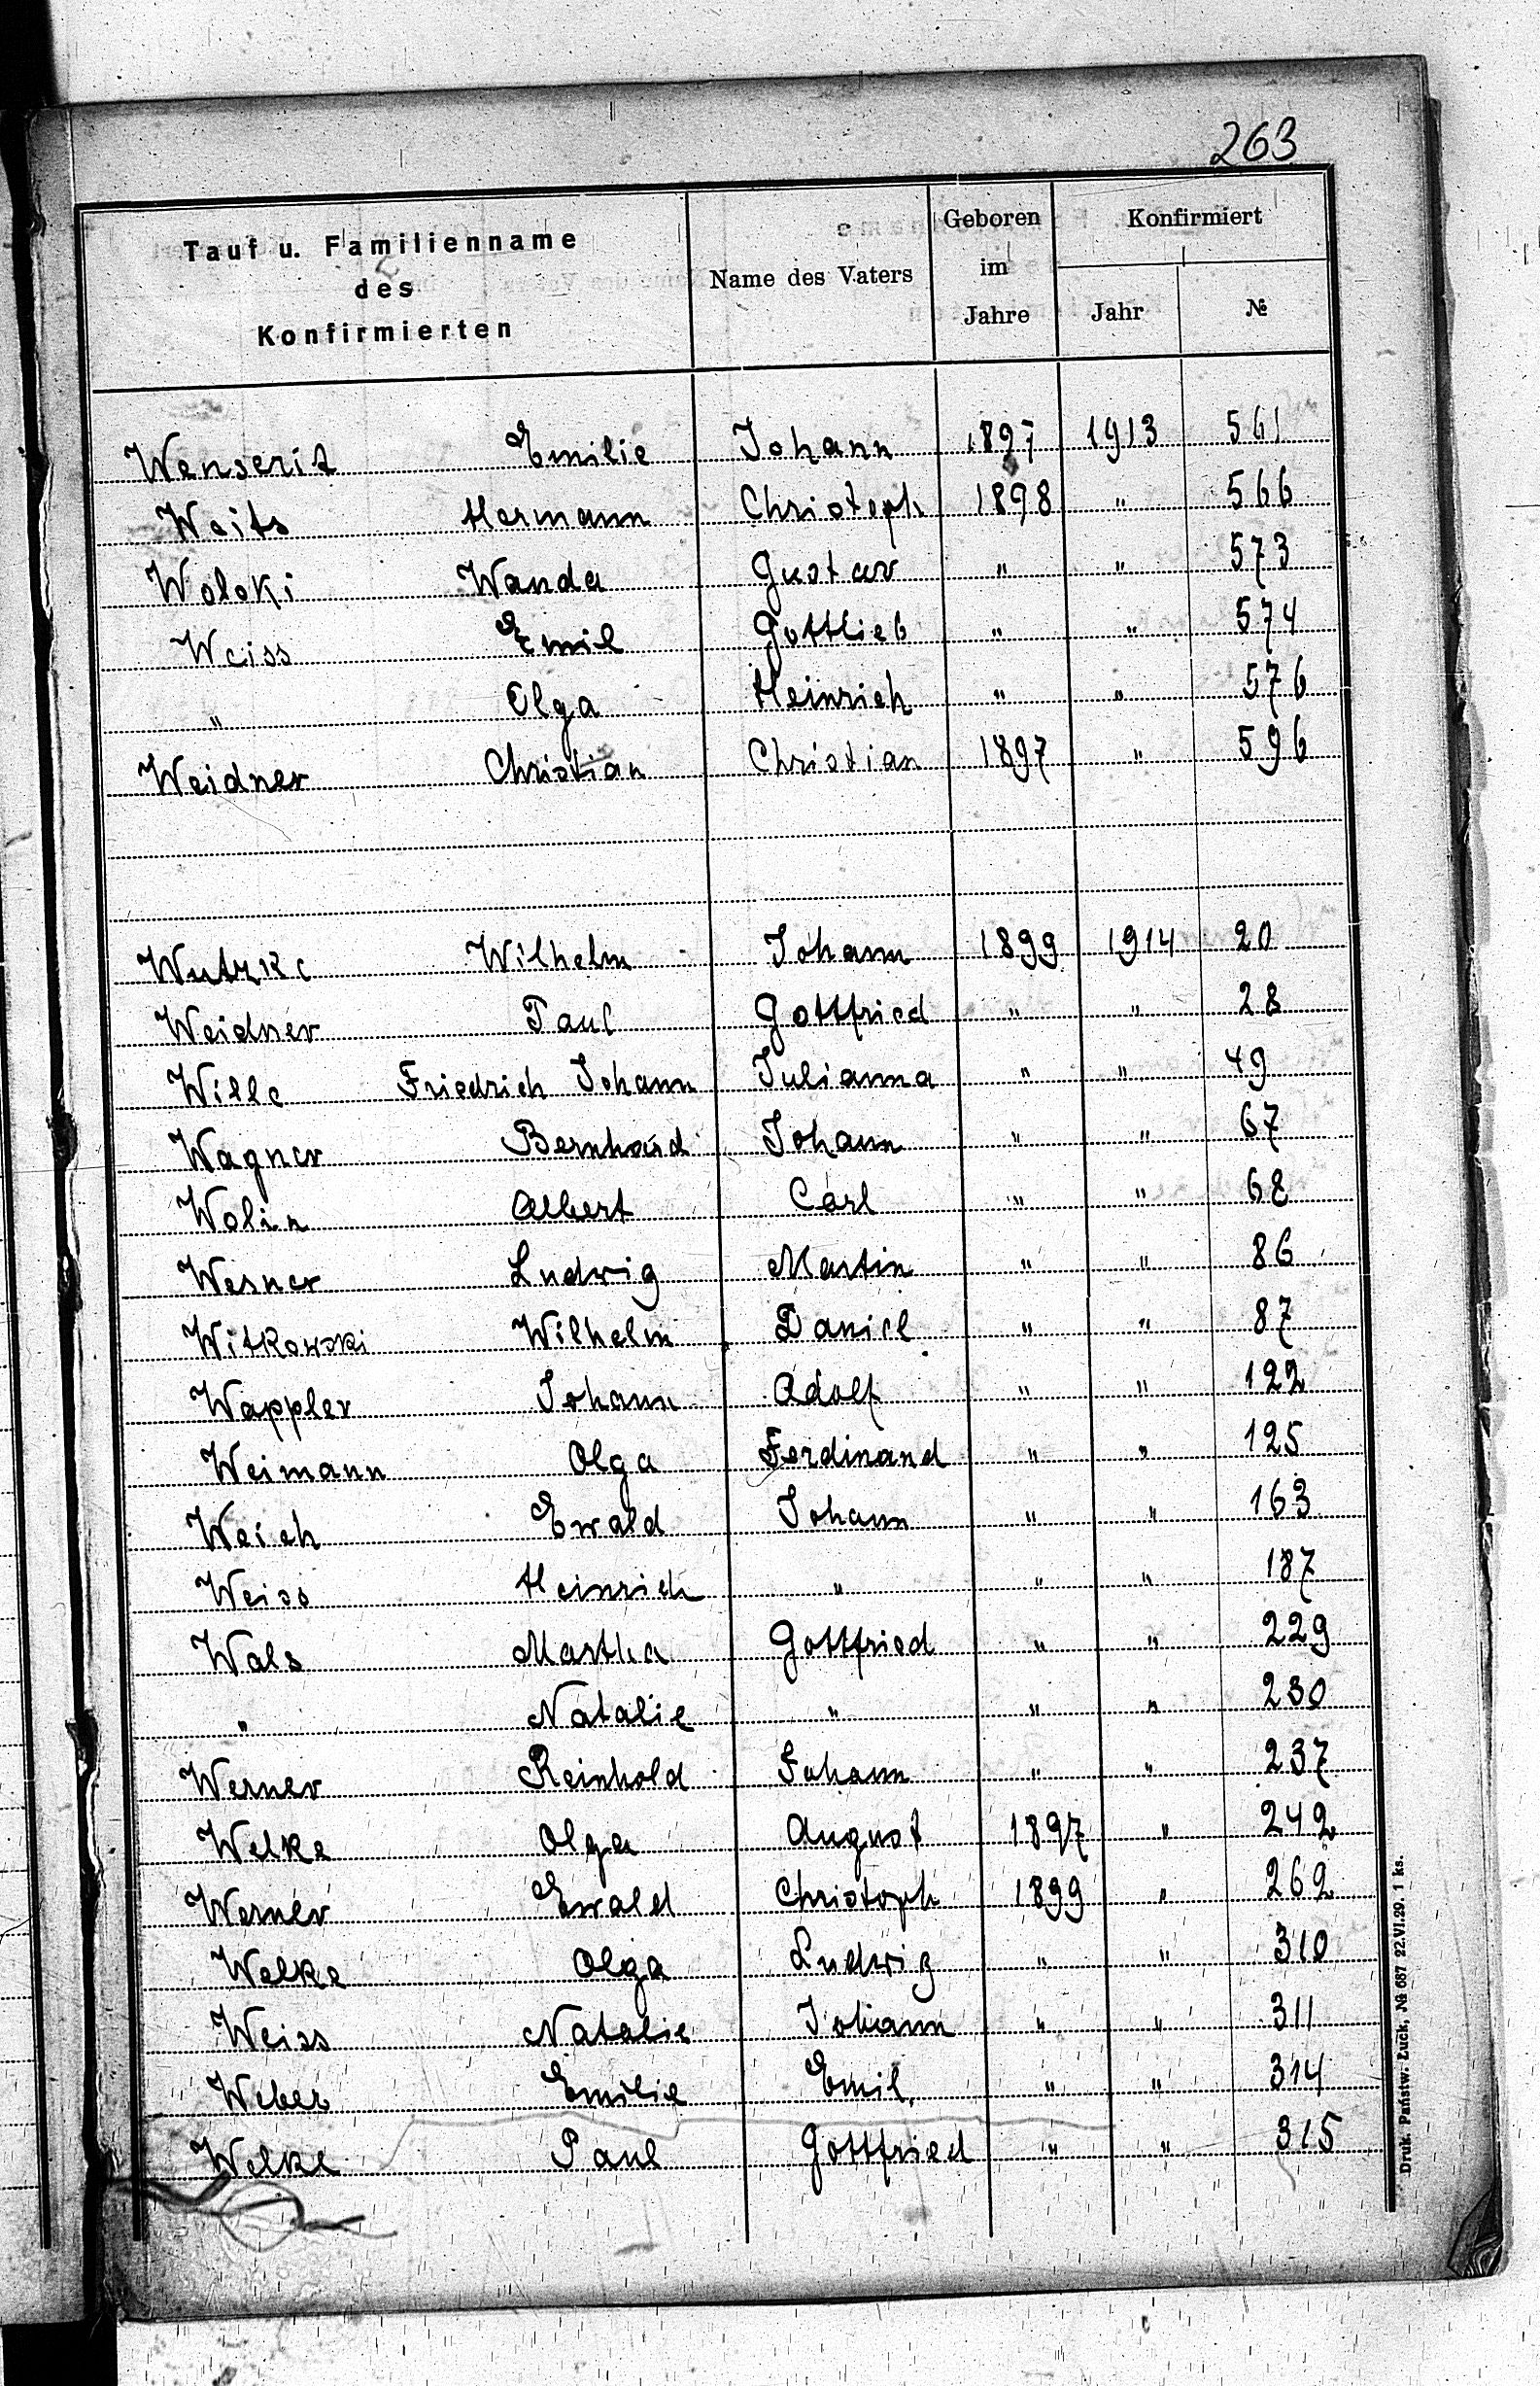 263
Tauf u. Familienname des Konfirmierten Name des Vaters Geboren im Jahre Konfirmiert Jahr №
Wenserit Emilie Johann 1897 1913 561
Weits Hermann Christoph 1898 " 566
Woloki Wanda Gustav " " 573
Weiss Emil Gottlieb " " 574
" Olga Heinrich " " 576
Weidner Christian Christian 1897 " 596
Wutzke Wilhelm Johann 1899 1914 20
Weidner Paul Gottfried " " 28
Wille Friedrich Johann Julianna " " 49
Wagner Bernhard Johann " " 67
Wolin Albert Carl " " 68
Wesner Ludwig Martin " " 86
Witkowski Wilhelm Daniel " " 87
Wappler Johann Adolf " " 122
Weimann Olga Ferdinand " " 125
Weich Ewald Johann " " 163
Weiss Heinrich " " " 187
Wals Martha Gottfried " " 229
" Natalie " " " 230
Werner Reinhold Johann " " 237
Welke Olga August 1897 " 242
Werner Ewald Christoph 1899 " 262
Welke Olga Ludwig " " 310
Weiss Natalie Johann " " 311
Weber Emilie Emil " " 314
Welke Paul Gottfried " " 315
Druk. Państw. Łuck, № 687 22.VI.29. 1 ks.